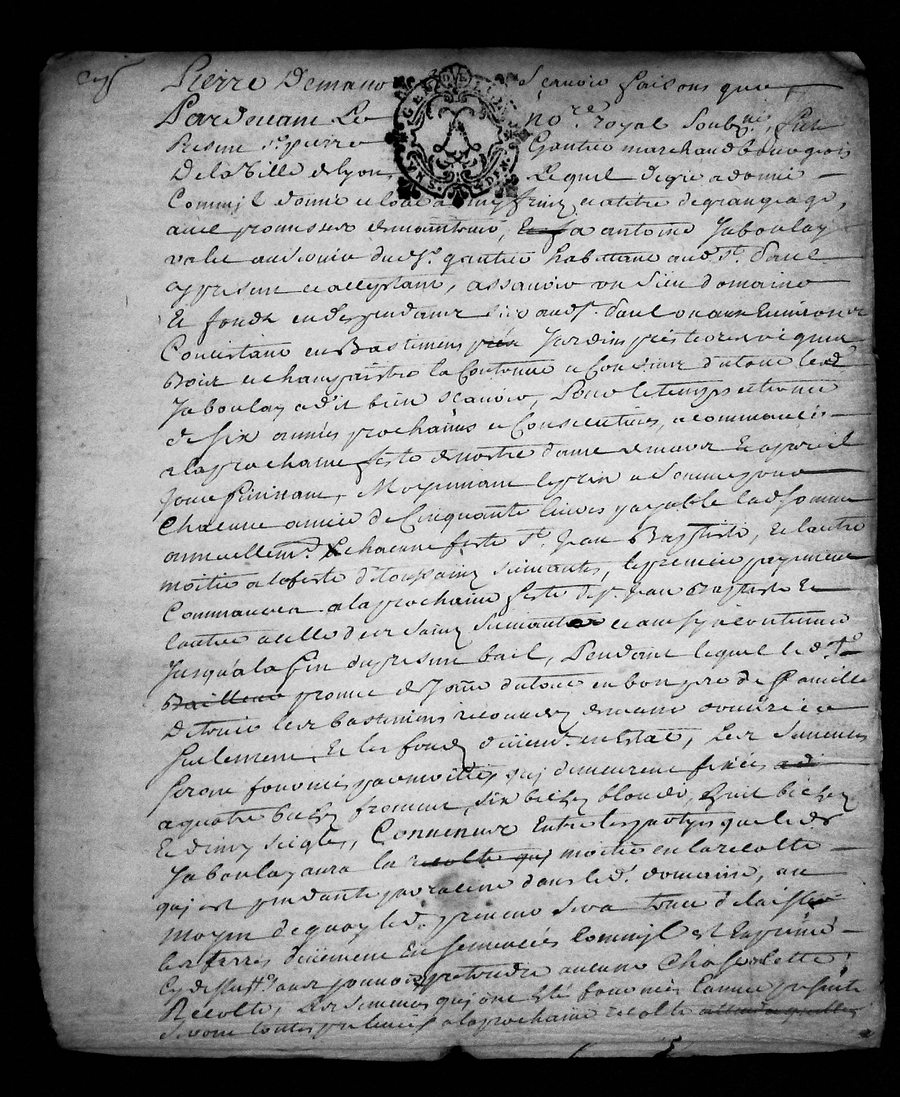 Pierre Demano Sçavoir faisons que
Pardevant Le no.re royal soub.né, fut
Present S.r pierre Gautier marchand bourgeois
De la Ville de lyon, Lequel de gré a donné
Comm'il donne et loue a my fruiz et a titre de grangeage,
avec promesse de maintenir, a antoine Jaboulay
valet du d. S.r gautier habitant aud. St. Paul
present et acceptant, a sçavoir un sien domaine
Et fonds en despendants
Consistant en Bastiments Jardin prés terres vignes
Bois et champ la Contenue et Confins du tout led.
Jaboulay a dit bien sçavoir, Pour le temps et terme
de six années prochaines et Consecutives, a commancés
a la prochaine feste de nostre dame de mars Et a pareil
jour finissant, Moyennant le prix et somme pour
Chacune année de Cinquante livres payable lad. somme
annuellem.t chacune feste St. Jean Baptiste, et l'autre
moitié a la feste de toussaintz suivantes, le premier payement
Commancera a la prochaine feste de St. Jean Baptiste Et
l'autre a celle des Saintz suivante et ainsy a continuer
Jusqu'a la fin du present bail, Pendant lequel le d.
Bailleur promet de Jouir du tout en bon pere de famille
De tenir les bastiments recouverts de main d'ouvrier
seulement, Et les fonds en Estat, Les semences
seront fournies par moittié, qui demeurent fixées
a quatre bichez froment six bichez blondé, huit bichez
Et demy seigle, Convenu Entre les parties que led.
Jaboulay aura la recolte qui moitié en la recolte
qui est pendante par racine dans led. domaine, au
moyen de quoy led. preneur sera tenu de laisser
les terres Ensemencées Comm'il est Exprimé
Cy dessus sans pouvoir pretendre aucune Chose a cette
Recolte, Les semences qui ont Eté fournies l'année presente
seront toutes prelevées a la prochaine recolte